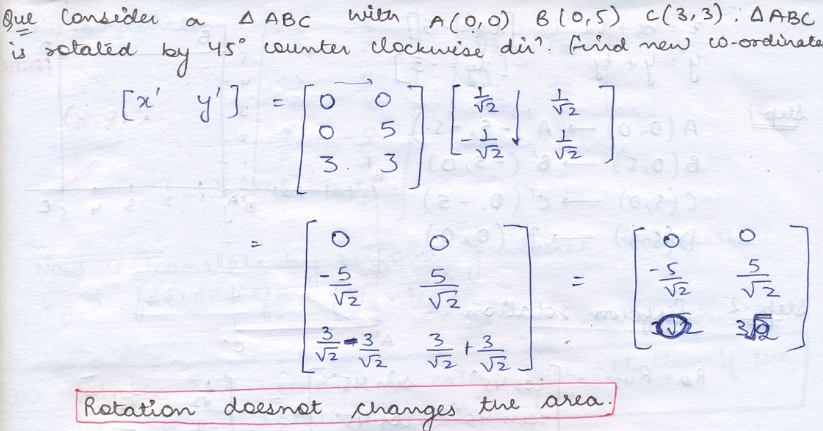 Que Consider a Δ ABC with A(0,0) B(0,5) C(3,3). ΔABC
is rotated by 45° counter clockwise dirⁿ. Find new co-ordinate
[x' y'] = [0 0; 0 5; 3 3] [1/√2 1/√2; -1/√2 1/√2]
= [0 0; -5/√2 5/√2; 3/√2 - 3/√2 3/√2 + 3/√2] = [0 0; -5/√2 5/√2; 0 3√2]
Rotation doesnot changes the area.